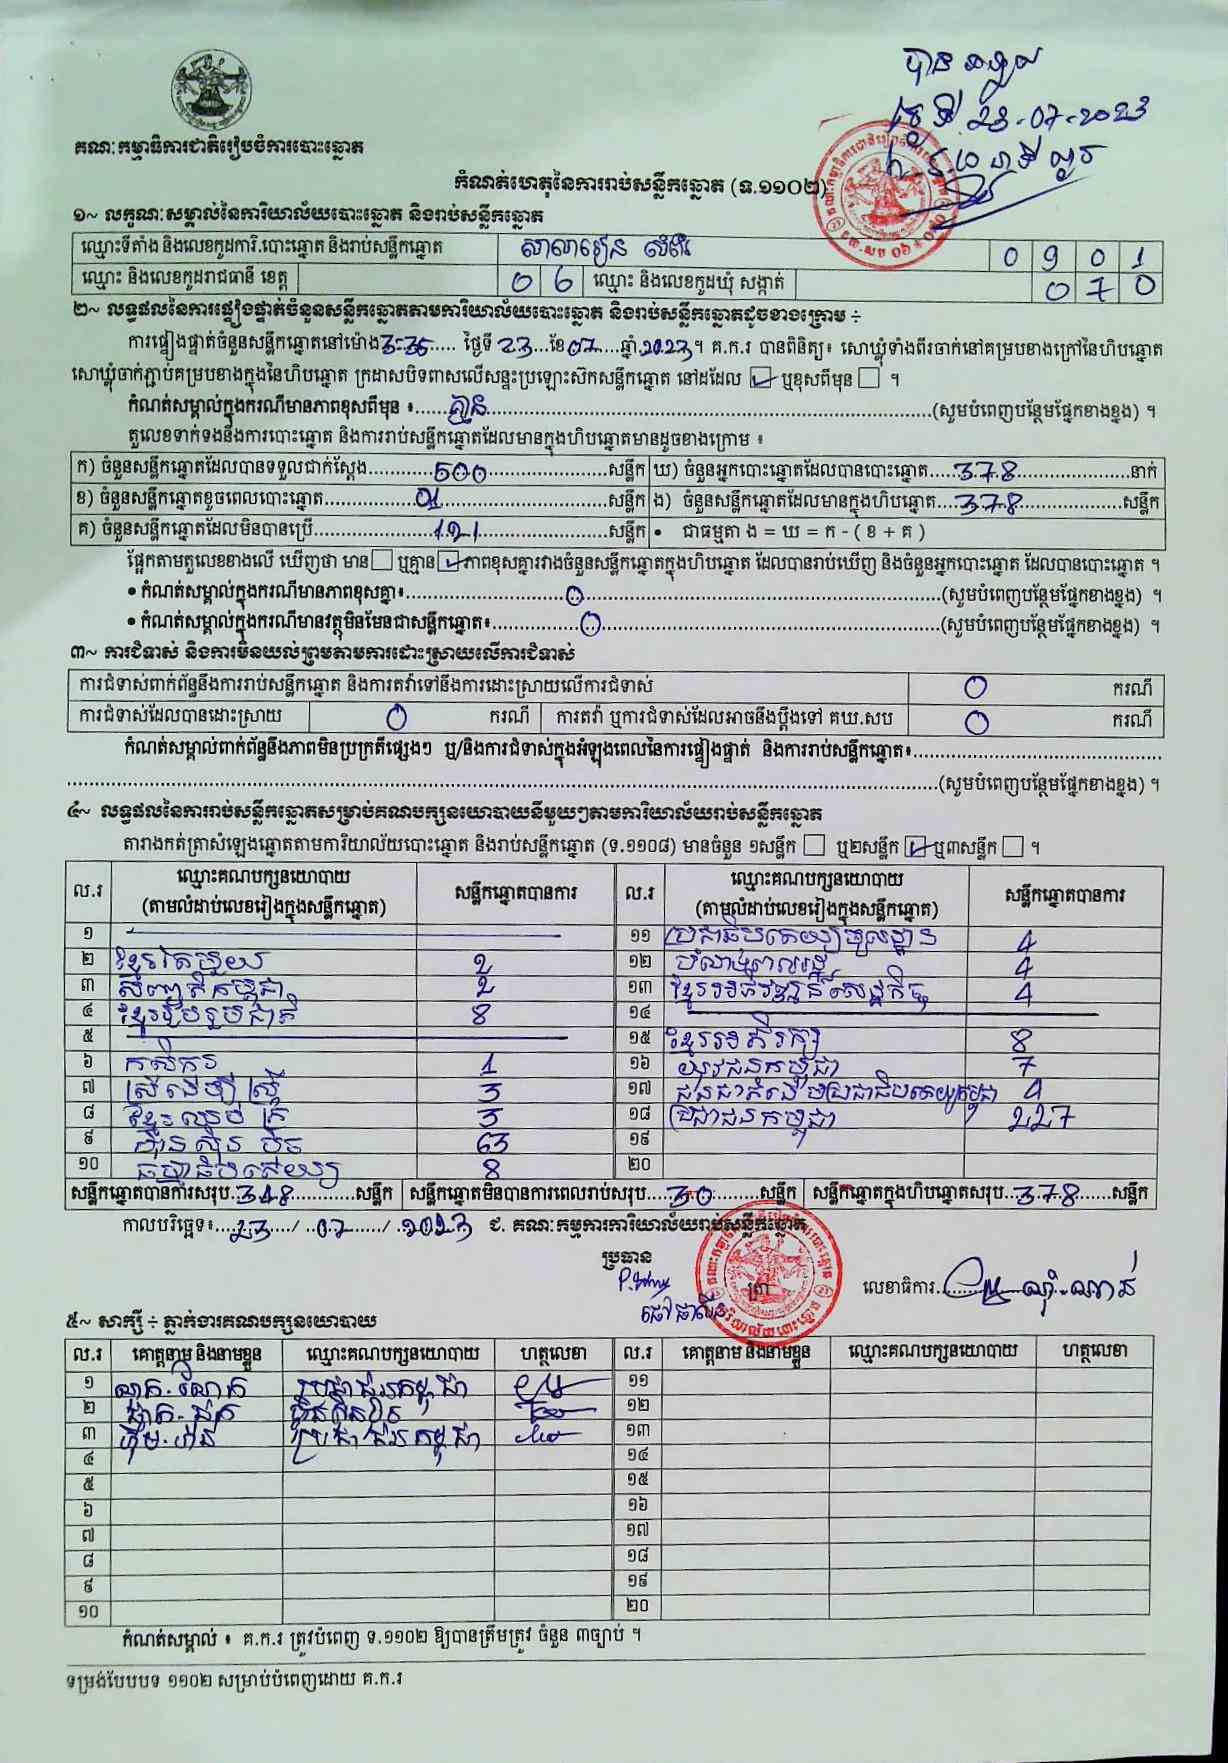 បានឃើញ
ថ្ងៃទី 23-07-2023
គណៈកម្មាធិការជាតិរៀបចំការបោះឆ្នោត
កំណត់ហេតុនៃការរាប់សន្លឹកឆ្នោត (ទ.១១០២)
១~ លក្ខណៈសម្គាល់នៃការិយាល័យបោះឆ្នោត និងរាប់សន្លឹកឆ្នោត
ឈ្មោះទីតាំង និងលេខកូដការិ.បោះឆ្នោត និងរាប់សន្លឹកឆ្នោត សាលារៀន 0 9 0 1
ឈ្មោះ និងលេខកូដរាជធានី ខេត្ត 0 6 ឈ្មោះ និងលេខកូដឃុំ សង្កាត់ 0 7 0
២~ លទ្ធផលនៃការផ្ទៀងផ្ទាត់ចំនួនសន្លឹកឆ្នោតតាមការិយាល័យបោះឆ្នោត និងរាប់សន្លឹកឆ្នោតដូចខាងក្រោម ÷
ការផ្ទៀងផ្ទាត់ចំនួនសន្លឹកឆ្នោតនៅម៉ោង 3:35 ថ្ងៃទី 23 ខែ 07 ឆ្នាំ 2023 ។ គ.ក.រ បានពិនិត្យ៖ សោឃ្លុំទាំងពីរចាក់នៅគម្របខាងក្រៅនៃហិបឆ្នោត
សោឃ្លុំចាក់ភ្ជាប់គម្របខាងក្នុងនៃហិបឆ្នោត ក្រដាសបិទពាសលើសន្ទះប្រឡោះស៊កសន្លឹកឆ្នោត នៅដដែល ☑ ឬខុសពីមុន ☐ ។
កំណត់សម្គាល់ក្នុងករណីមានភាពខុសពីមុន ៖ គ្មាន (សូមបំពេញបន្ថែមផ្នែកខាងខ្នង) ។
តួលេខទាក់ទងនឹងការបោះឆ្នោត និងការរាប់សន្លឹកឆ្នោតដែលមានក្នុងហិបឆ្នោតមានដូចខាងក្រោម ៖
ក) ចំនួនសន្លឹកឆ្នោតដែលបានទទួលជាក់ស្តែង 500 សន្លឹក ឃ) ចំនួនអ្នកបោះឆ្នោតដែលបានបោះឆ្នោត 378 នាក់
ខ) ចំនួនសន្លឹកឆ្នោតខូចពេលបោះឆ្នោត 01 សន្លឹក ង) ចំនួនសន្លឹកឆ្នោតដែលមានក្នុងហិបឆ្នោត 378 សន្លឹក
គ) ចំនួនសន្លឹកឆ្នោតដែលមិនបានប្រើ 121 សន្លឹក • ជាធម្មតា ង = ឃ = ក - ( ខ + គ )
ផ្អែកតាមតួលេខខាងលើ ឃើញថា មាន ☐ ឬគ្មាន ☑ ភាពខុសគ្នារវាងចំនួនសន្លឹកឆ្នោតក្នុងហិបឆ្នោត ដែលបានរាប់ឃើញ និងចំនួនអ្នកបោះឆ្នោត ដែលបានបោះឆ្នោត ។
• កំណត់សម្គាល់ក្នុងករណីមានភាពខុសគ្នា៖ 0 (សូមបំពេញបន្ថែមផ្នែកខាងខ្នង) ។
• កំណត់សម្គាល់ក្នុងករណីមានវត្ថុមិនមែនជាសន្លឹកឆ្នោត៖ 0 (សូមបំពេញបន្ថែមផ្នែកខាងខ្នង) ។
៣~ ការជំទាស់ និងការមិនយល់ព្រមតាមការដោះស្រាយលើការជំទាស់
ការជំទាស់ពាក់ព័ន្ធនឹងការរាប់សន្លឹកឆ្នោត និងការតវ៉ាទៅនឹងការដោះស្រាយលើការជំទាស់ 0 ករណី
ការជំទាស់ដែលបានដោះស្រាយ 0 ករណី ការតវ៉ា ឬការជំទាស់ដែលអាចនឹងប្តឹងទៅ គឃ.សប 0 ករណី
កំណត់សម្គាល់ពាក់ព័ន្ធនឹងភាពមិនប្រក្រតីផ្សេងៗ ឬ/និងការជំទាស់ក្នុងអំឡុងពេលនៃការផ្ទៀងផ្ទាត់ និងការរាប់សន្លឹកឆ្នោត៖
(សូមបំពេញបន្ថែមផ្នែកខាងខ្នង) ។
៤~ លទ្ធផលនៃការរាប់សន្លឹកឆ្នោតសម្រាប់គណបក្សនយោបាយនីមួយៗតាមការិយាល័យរាប់សន្លឹកឆ្នោត
តារាងកត់ត្រាសំឡេងឆ្នោតតាមការិយាល័យបោះឆ្នោត និងរាប់សន្លឹកឆ្នោត (ទ.១១០៨) មានចំនួន ១សន្លឹក ☐ ឬ២សន្លឹក ☑ ឬ៣សន្លឹក ☐ ។
ល.រ ឈ្មោះគណបក្សនយោបាយ (តាមលំដាប់លេខរៀងក្នុងសន្លឹកឆ្នោត) សន្លឹកឆ្នោតបានការ ល.រ ឈ្មោះគណបក្សនយោបាយ (តាមលំដាប់លេខរៀងក្នុងសន្លឹកឆ្នោត) សន្លឹកឆ្នោតបានការ
១ ១១ ប្រជាធិបតេយ្យមូលដ្ឋាន 4
២ ខ្មែរតែមួយ 2 ១២ បំណងពលរដ្ឋ 4
៣ សញ្ជាតិកម្ពុជា 2 ១៣ ខ្មែរអភិវឌ្ឍន៍សេដ្ឋកិច្ច 4
៤ ខ្មែររួបរួមជាតិ 8 ១៤
៥ ១៥ ខ្មែរអភិរក្ស 8
៦ កសិករ 1 ១៦ យុវជនកម្ពុជា 7
៧ ស្រីដើម្បីស្ត្រី 3 ១៧ ជនជាតិដើមប្រជាធិបតេយ្យកម្ពុជា 4
៨ ខ្មែរឈប់ក្រ 3 ១៨ ប្រជាជនកម្ពុជា 227
៩ ហ៊្វុនស៊ិនប៉ិច 63 ១៩
១០ ធម្មាធិបតេយ្យ 8 ២០
សន្លឹកឆ្នោតបានការសរុប 348 សន្លឹក សន្លឹកឆ្នោតមិនបានការពេលរាប់សរុប 30 សន្លឹក សន្លឹកឆ្នោតក្នុងហិបឆ្នោតសរុប 378 សន្លឹក
កាលបរិច្ឆេទ៖ 23 / 07 / 2023 ជ. គណៈកម្មការការិយាល័យរាប់សន្លឹកឆ្នោត
ប្រធាន
ត្រា លេខាធិការ
៥~ សាក្សី ÷ ភ្នាក់ងារគណបក្សនយោបាយ
ល.រ គោត្តនាម និងនាមខ្លួន ឈ្មោះគណបក្សនយោបាយ ហត្ថលេខា ល.រ គោត្តនាម និងនាមខ្លួន ឈ្មោះគណបក្សនយោបាយ ហត្ថលេខា
១ ប្រជាជនកម្ពុជា ១១
២ ហ៊្វុនស៊ិនប៉ិច ១២
៣ ប្រជាជនកម្ពុជា ១៣
៤ ១៤
៥ ១៥
៦ ១៦
៧ ១៧
៨ ១៨
៩ ១៩
១០ ២០
កំណត់សម្គាល់ ៖ គ.ក.រ ត្រូវបំពេញ ទ.១១០២ ឱ្យបានត្រឹមត្រូវ ចំនួន ៣ច្បាប់ ។
ទម្រង់បែបបទ ១១០២ សម្រាប់បំពេញដោយ គ.ក.រ